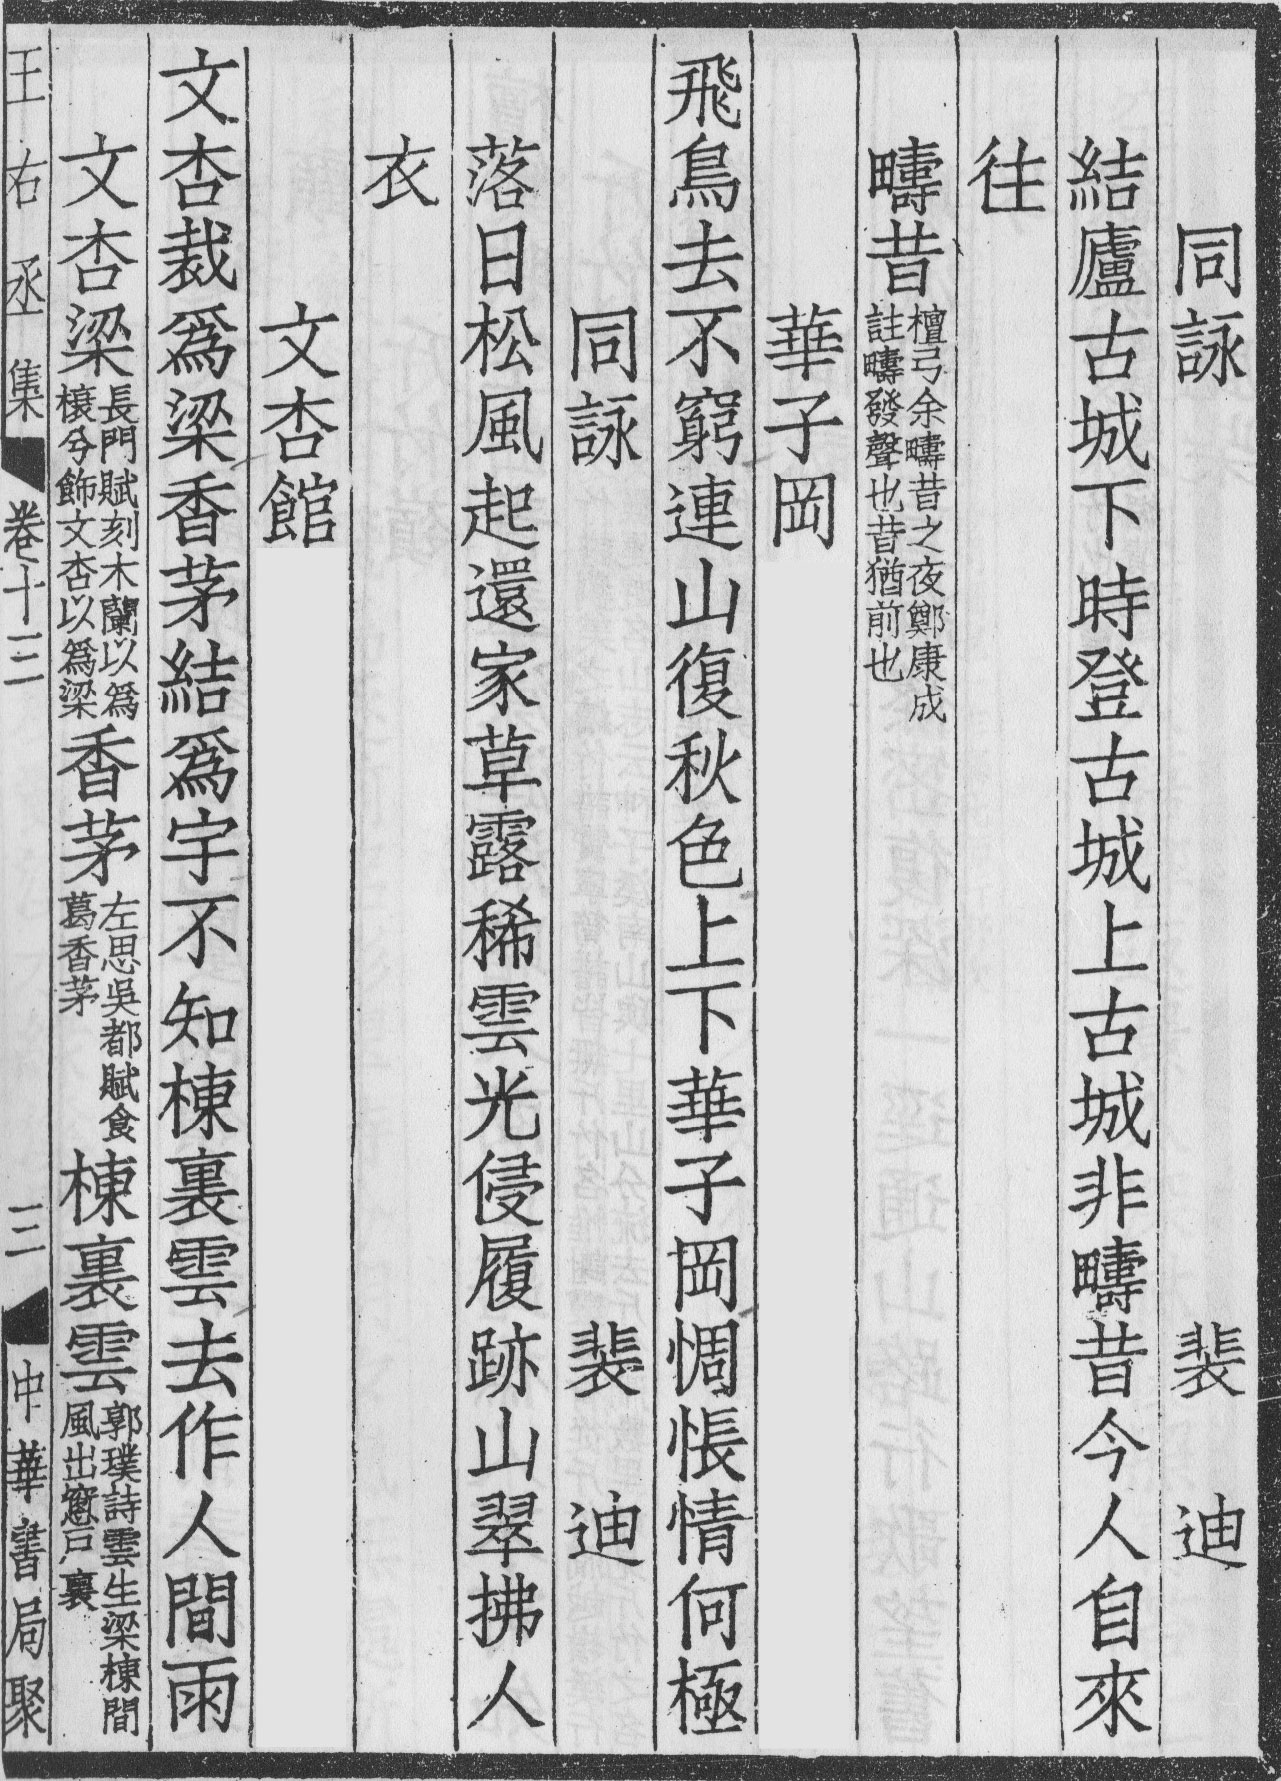 同詠　裴迪
結廬古城下時登古城上古城非疇昔今人自來
往
疇昔檀弓余疇昔之夜鄭康成註疇發聲也昔猶前也
華子岡
飛鳥去不窮連山復秋色上下華子岡惆悵情何極
同詠　裴迪
落日松風起還家草露稀雲光侵履跡山翠拂人
衣
文杏館
文杏裁爲梁香茅結爲宇不知棟裏雲去作人間雨
文杏梁長門賦刻木蘭以爲榱兮飾文杏以爲梁香茅左思吳都賦食葛香茅棟裏雲郭璞詩雲生梁棟間風出窻戶裏
王右丞集　卷十三　三　中華書局聚